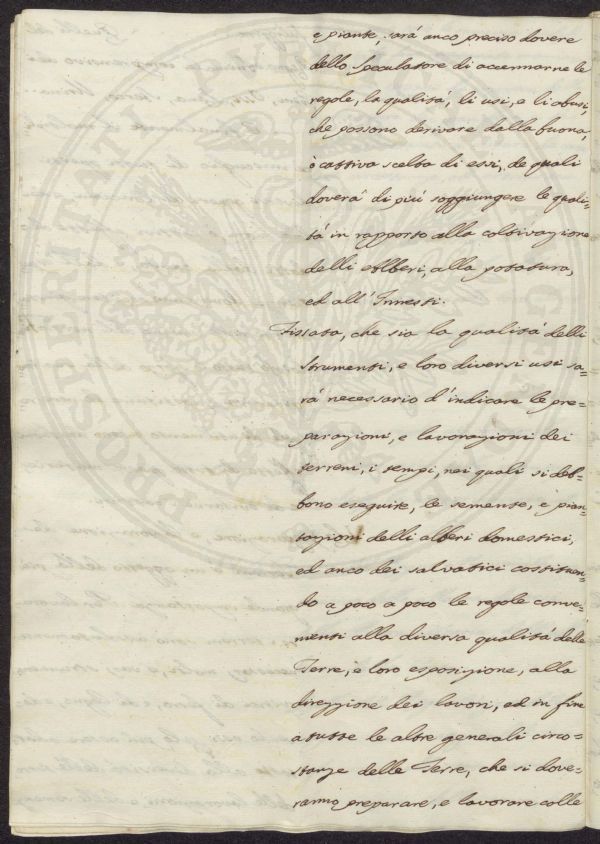 e piante, sará anco preciso dovere
dello Speculatore di accennarne le
regole, la qualitá, li usi, e li abusi,
che possono derivare dalla buona,
ò cattiva scelta di essi, de quali
doverá di piú soggiungere le quali=
tá in rapporto alla coltivazione
delli Alberi, alla potatura,
ed all'Innesti.
Fissata, che sia la qualitá delli
Strumenti, e loro diversi usi sa=
rá necessario d'indicare le pre=
parazioni, e lavorazioni dei
terreni, i tempi, nei quali si deb=
bono eseguite, le semente, e pian=
tazioni delli alberi domestici,
ed anco dei salvatici costituen=
do a poco a poco le regole conve=
nienti alla diversa qualitá delle
Terre, e loro esposizione, alla
direzzione dei lavori, ed in fine
a tutte le altre generali circo=
stanze delle Terre, che si dove=
ranno preparare, e lavorare colle
PROSPERITATI PVBLICAE